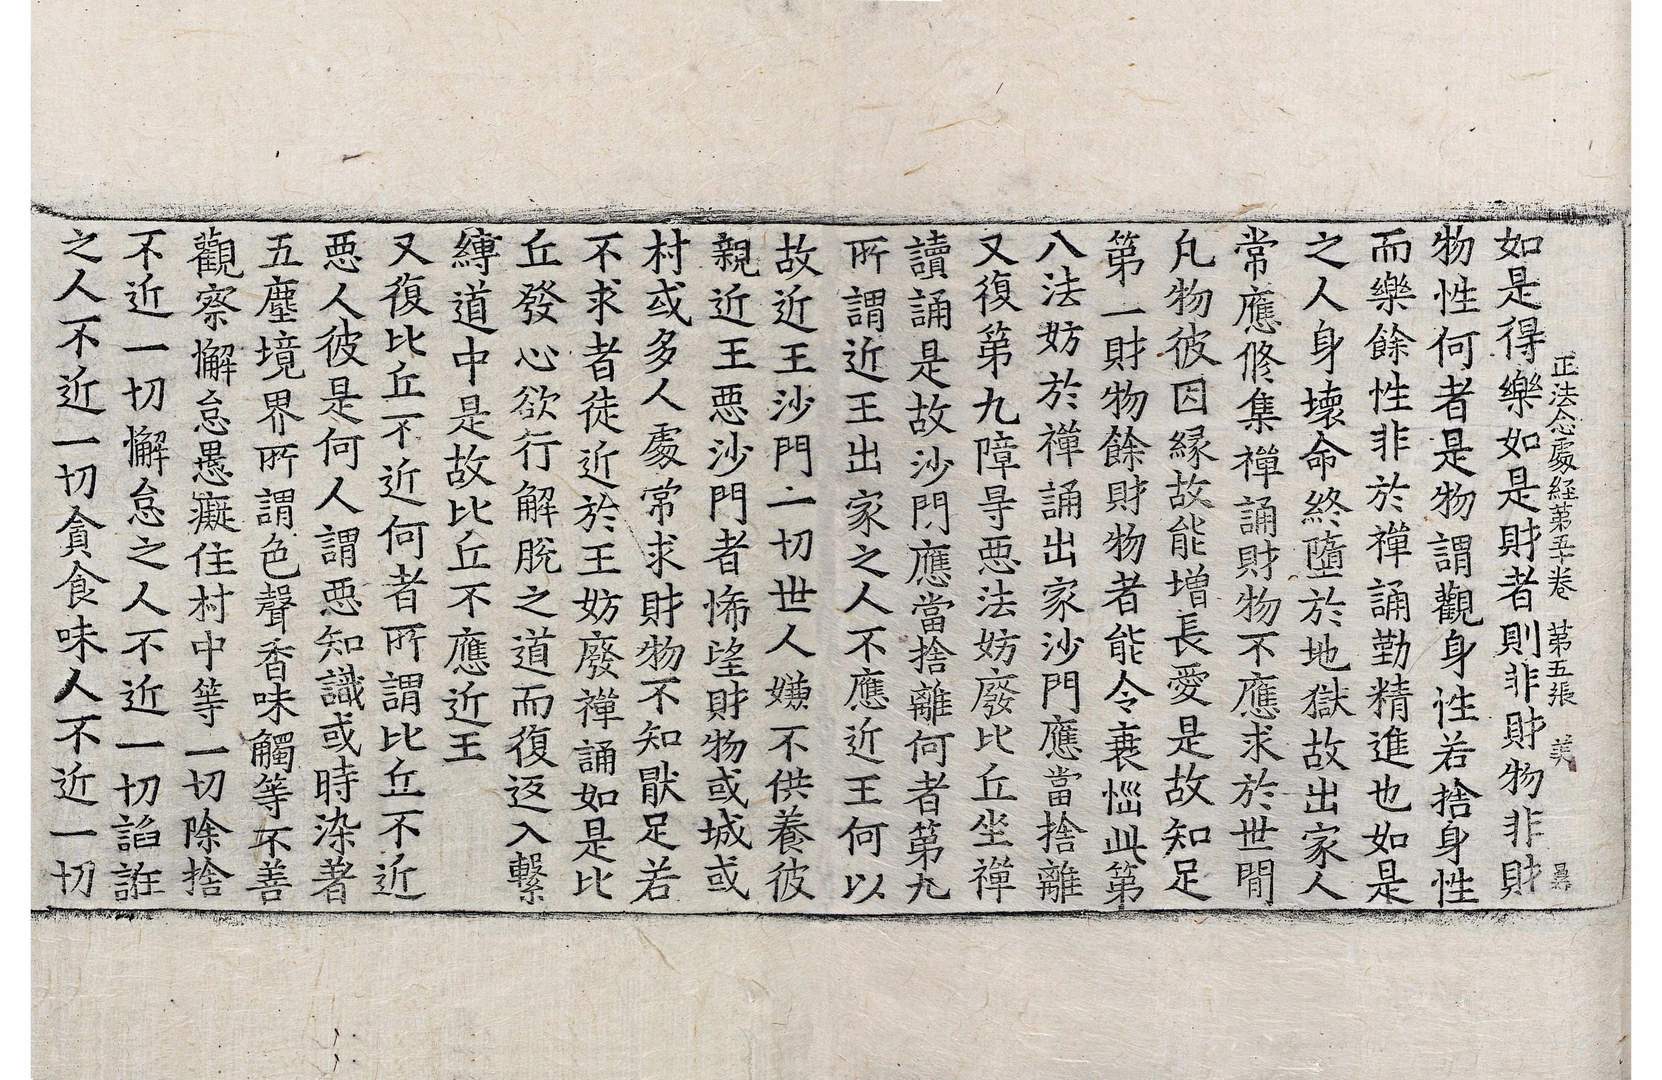 正法念處経第五十卷 第五張 羙
如是得樂如是財者則非財物非財
物性何者是物謂觀身性若捨身性
而樂餘性非於禪誦勤精進也如是
之人身壞命終墮於地獄故出家人
常應修集禪誦財物不應求於世間
凡物彼因縁故能增長愛是故知足
第一財物餘財物者能令衰惱此第
八法妨於禪誦出家沙門應當捨離
又復第九障㝵悪法妨廢比丘坐禪
讀誦是故沙門應當捨離何者第九
所謂近王出家之人不應近王何以
故近王沙門一切世人嫌不供養彼
親近王悪沙門者悕望財物或城或
村或多人處常求財物不知猒足若
不求者徒近於王妨廢禪誦如是比
丘發心欲行解脫之道而復返入繫
縛道中是故比丘不應近王
又復比丘不近何者所謂比丘不近
悪人彼是何人謂悪知識或時染著
五塵境界所謂色聲香味觸等不善
觀察懈怠愚癡住村中等一切除捨
不近一切懈怠之人不近一切諂誑
之人不近一切貪食味人不近一切